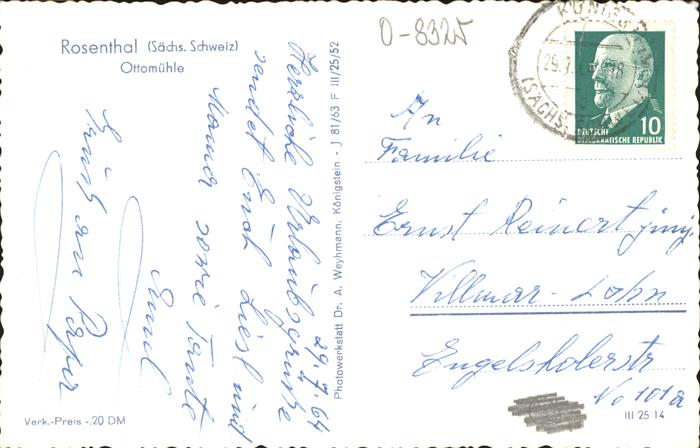 Rosenthal (Sächs. Schweiz)
Ottomühle
29.7.64
Herzliche Urlaubsgrüße
sendet Euch Liesl und
Mama sowie Tante
Gruß an Papa
Verk.-Preis -,20 DM
Photowerkstatt Dr. A. Weyhmann, Königstein - J 81/63 F III/25/52
0-8325
KÖNIGSTEIN
29.7.
(SÄCHS.
10
DEUTSCHE
DEMOKRATISCHE REPUBLIK
An
Familie
Ernst Reinert jung.
Villmar-Lahn
Engelsholerstr
No 101a
III 25 14